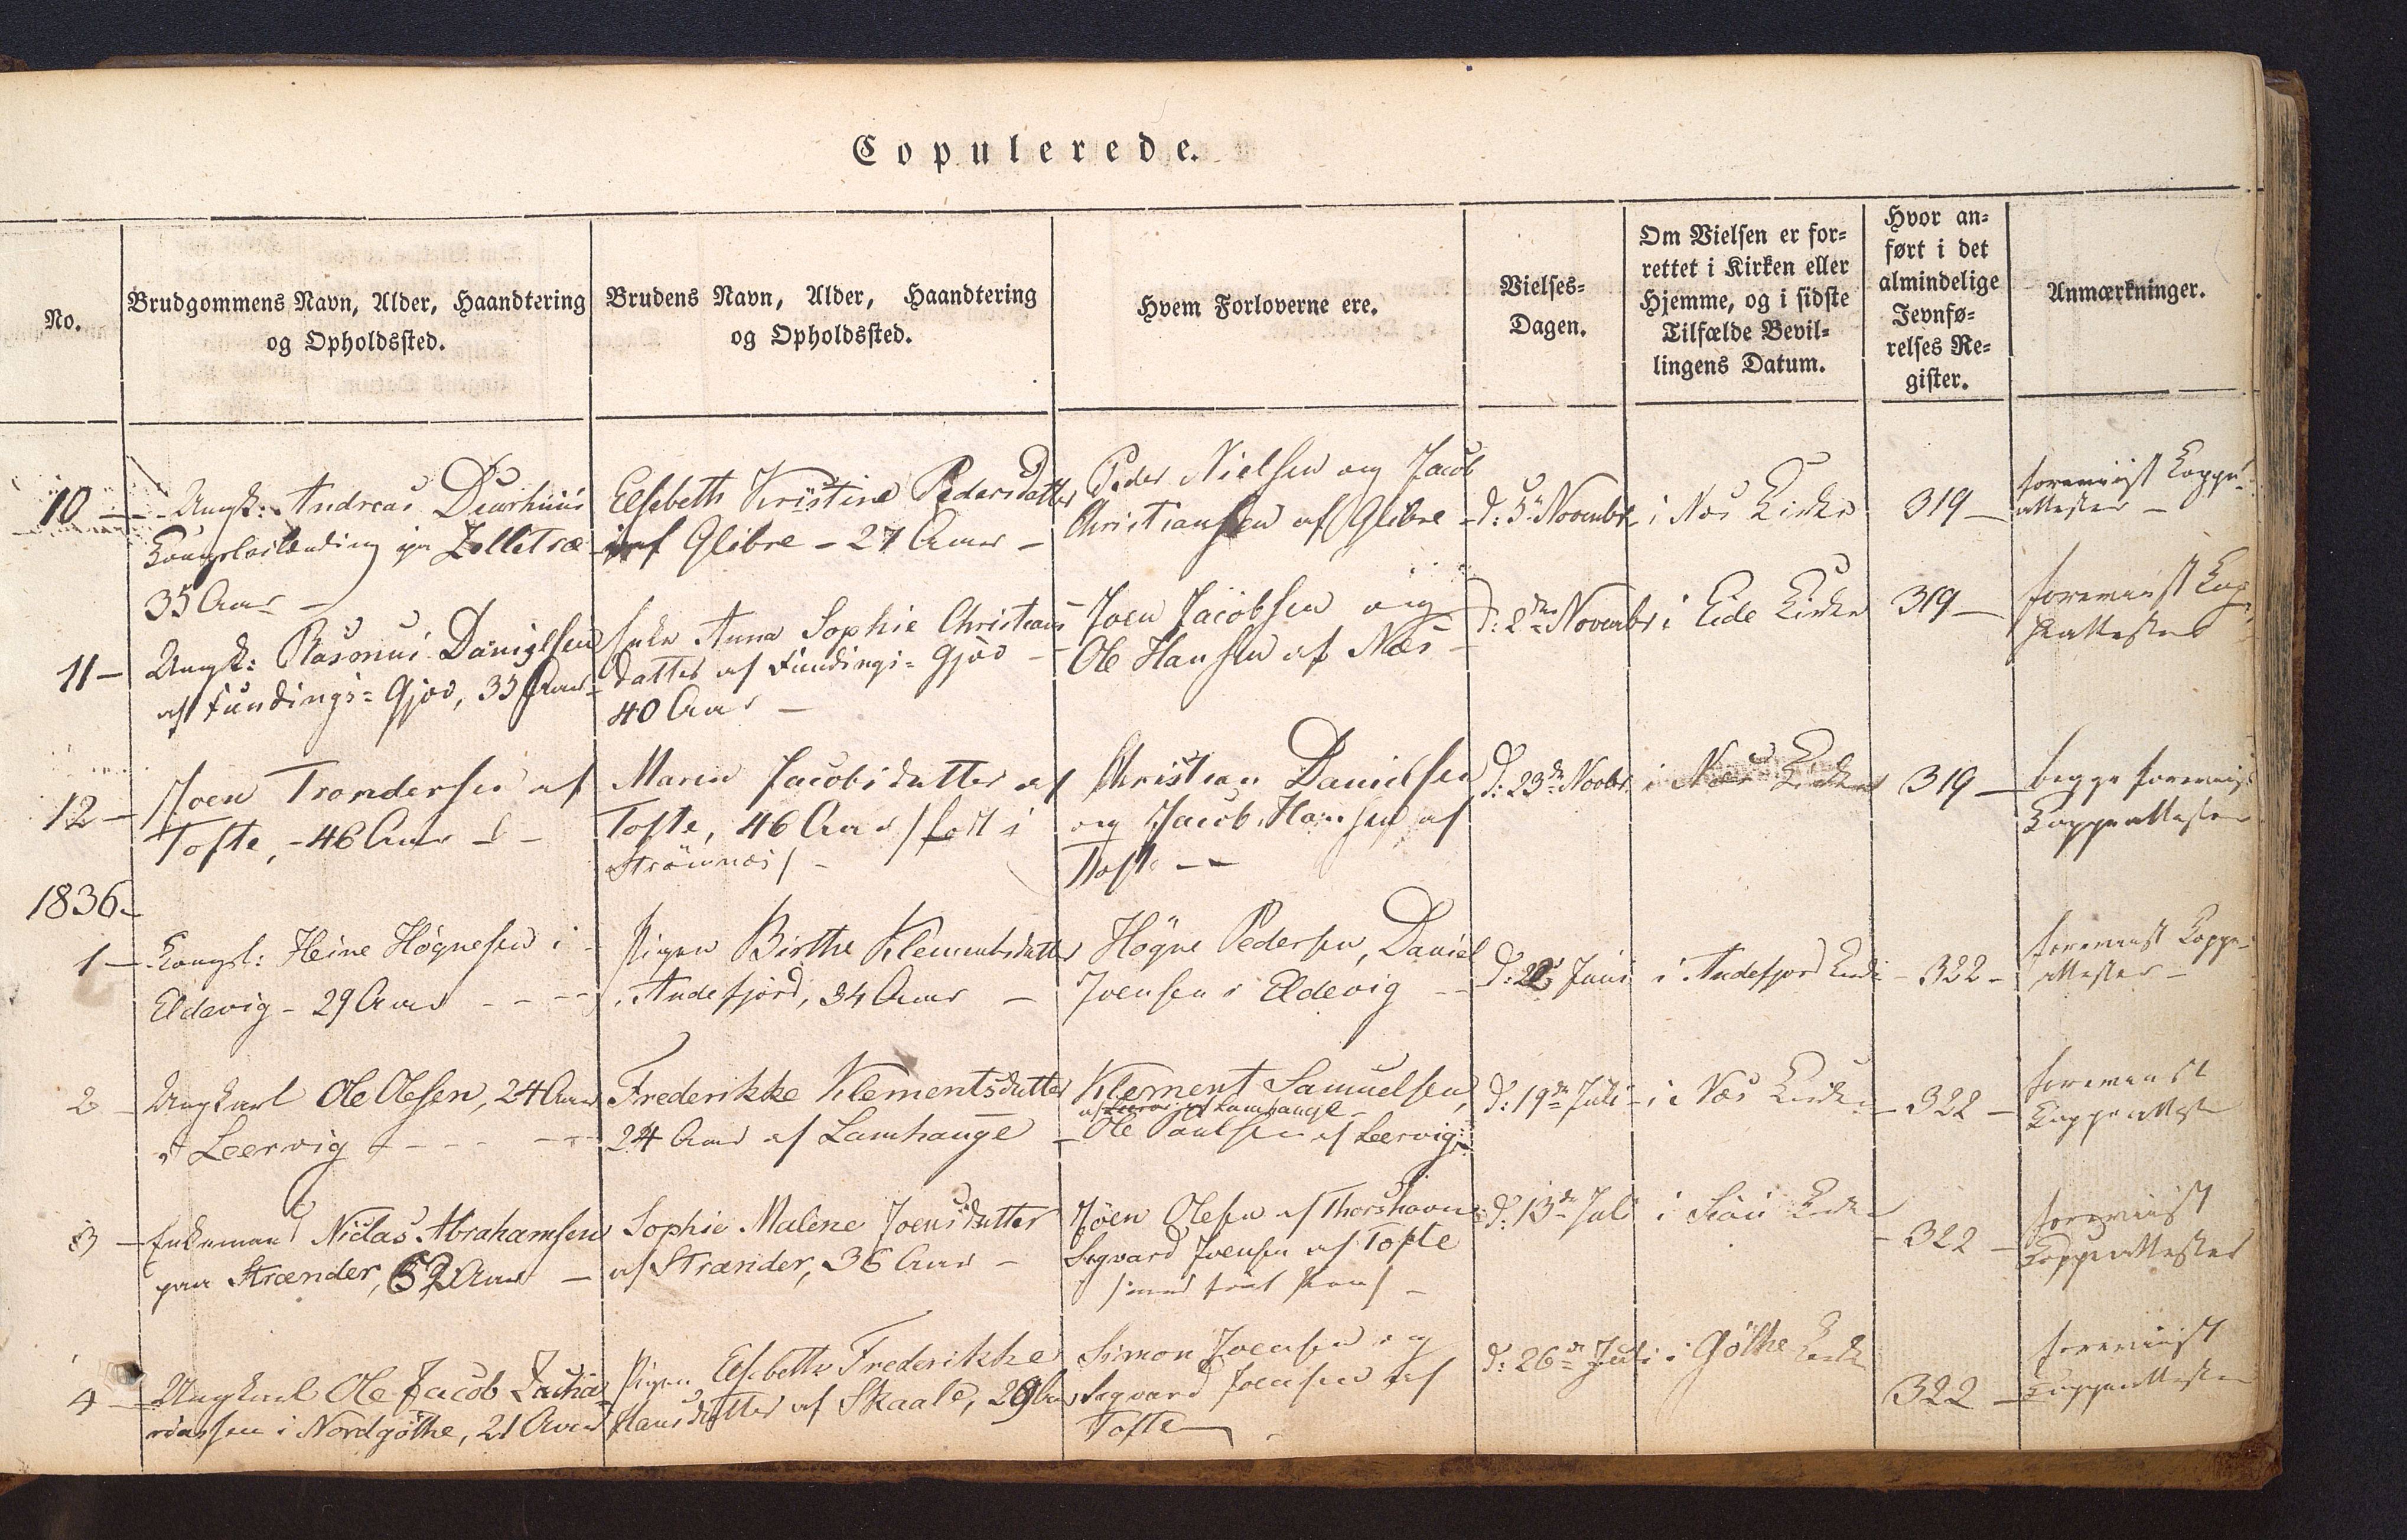 Copulerede.
No.
Brudgommens Navn, Alder, Haandtering
og Opholdssted.
Brudens Navn, Alder, Haandtering
og Opholdssted.
Hvem Forloverne ere.
Vielses=
Dagen.
Om Vielsen er for=
rettet i Kirken eller
Hjemme, og i sidste
Tilfælde Bevil=
lingens Datum.
Hvor an=
ført i det
almindelige
Jevnfø=
relses Re=
gister.
Anmærkninger.
10 —
Ungk: Andreas Djurhuus
Kongsbo
35 Aar —
Elsebeth Kristine Pedersdatter
af Glibre - 27 Aar —
Peder Nielsen og Jacob
Christiansen af Glibre
d: 5 Novembr
i Næs Kirke
319 —
foreviist Koppe-
attester —
11 —
Ungk: Rasmus Danielsen
af Fundings= Gjov, 35 Aar
Enke Anna Sophie Christians
datter af Fundings= Gjov —
40 Aar —
Joen Jacobsen og
Ole Hansen af Næs —
d: 2den Novembr
i Eide Kirke
319 —
foreviist Kop
peattester
12 —
Joen Trondersen af
Tofte, - 46 Aar —
Maren Jacobsdatter af
Tofte, 46 Aar / født i
Strømnæs / -
Christian Danielsen
og Jacob Hansen af
Tofte —
d: 23de Novbr
i Næs Kirke
319 —
begge foreviist
Koppeattester
1836 -
1 —
Kongsb: Heine Høgnesen i
Eldevig - 29 Aar - - -
Pigen Birthe Klementsdatter
i Andefjord, 34 Aar —
Høgne Pedersen, Daniel
Joensen i Eldevig —
Juni
i Andefjord Kirke
322 -
foreviist Koppe-
attester -
2 -
Ungkarl Ole Olesen, 24 Aar
af Leervig - - -
Frederikke Klementsdatter
24 Aar af Lamhauge
Klement Samuelsen,
af Lamhauge -
Ole Poulsen af Leervig
d: 19de Juli
i Næs Kirke
322 —
foreviist
Koppeattester
3 —
Enkemand Niclas Abrahamsen
paa Strænder, 62 Aar —
Sophie Malene Joensdatter
af Strænder, 36 Aar -
Joen Olesen af Thorshavn
Sigvard Joensen af Tofte
d: 13de Juli
i Kirke
322 —
foreviist
Koppeattester
4 —
Ungkarl Ole Jacob Zacha
riassen i Nordgøthe, 21 Aar
Pigen Elsebeth Frederikke
Hansdatter af Skaale, 29 Aar
Simon Joensen og
Sigvard Joensen af
Tofte
d: 26de Juli
i Gøthe Kirke
322 —
foreviist
Koppeattester